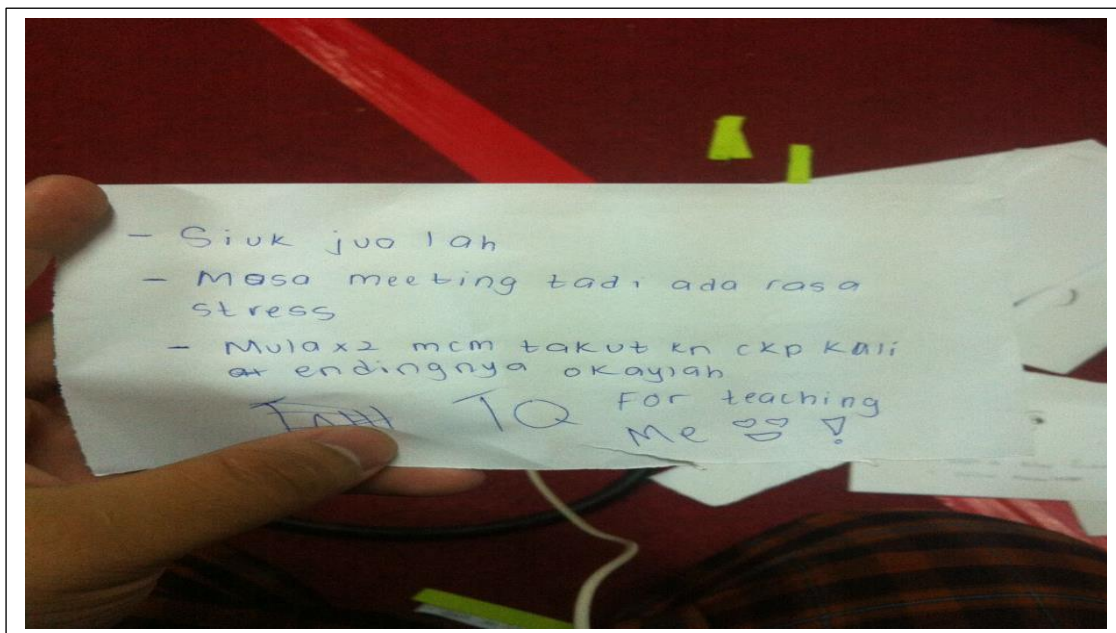 - Siuk juo lah
- Masa meeting tadi ada rasa
stress
- Mula x2 mcm takut kn ckp kali
endingnya okaylah
TQ For teaching
Me !